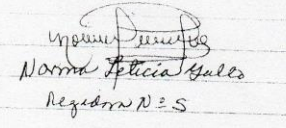 Norma Leticia Gallo
Regidora Nº 5